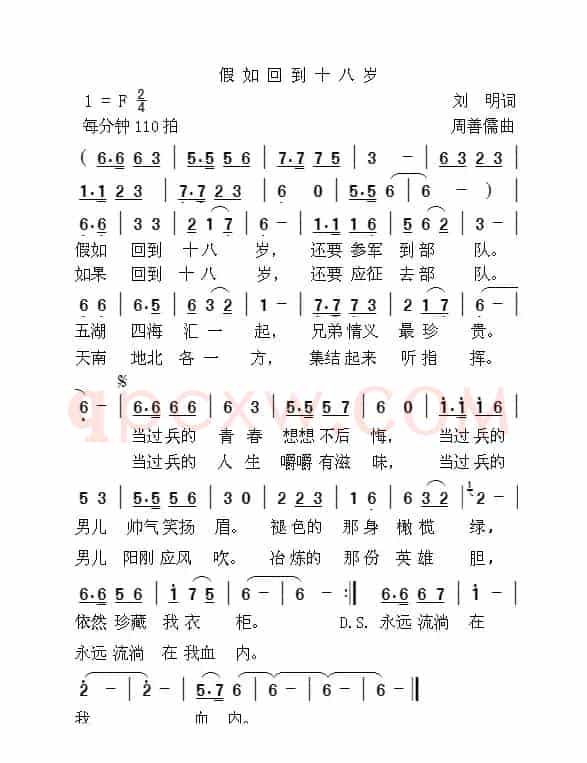 假如回到十八岁
1 = F 2/4 刘 明词
每分钟110拍 周善儒曲
( 6·6 6 3 | 5·5 5 6 | 7·7 7 5 | 3 － | 6 3 2 3 |
1·1 2 3 | 7·7 2 3 | 6 0 | 5·5 6 | 6 － ) |
6·6 | 3 3 | 2 1 7 | 6 － | 1·1 1 6 | 5 6 2 | 3 － |
假如 回到 十八 岁， 还要 参军 到部 队。
如果 回到 十八 岁， 还要 应征 去部 队。
6 6 | 6·5 | 6 3 2 | 1 － | 7·7 7 3 | 2 1 7 | 6 － |
五湖 四海 汇一 起， 兄弟情义 最珍 贵。
天南 地北 各一 方， 集结起来 听指 挥。
𝄋
6 － | 6·6 6 6 | 6 3 | 5·5 5 7 | 6 0 | 1·1 1 6 |
qpcxw.COM
当过兵的 青春 想想不后 悔， 当过兵的
当过兵的 人生 嚼嚼有滋 味， 当过兵的
5 3 | 2·5 5 5 | 3 0 | 2·2 2 | 1 6 | 6 3 2 | 1 2 － |
男儿 帅气笑扬 眉。 褪色的 那身 橄榄 绿，
男儿 阳刚应风 吹。 冶炼的 那份 英雄 胆，
6·6 5 6 | 1 7 5 | 6 － | 6 － :‖ 6·6 6 7 | 1 6 |
依然珍藏 我衣 柜。 D.S. 永远流淌 在
永远流淌 在我血 内。
2 － | 2 － | 5·7 6 | 6 － | 6 － | 6 － ‖
我 血内。